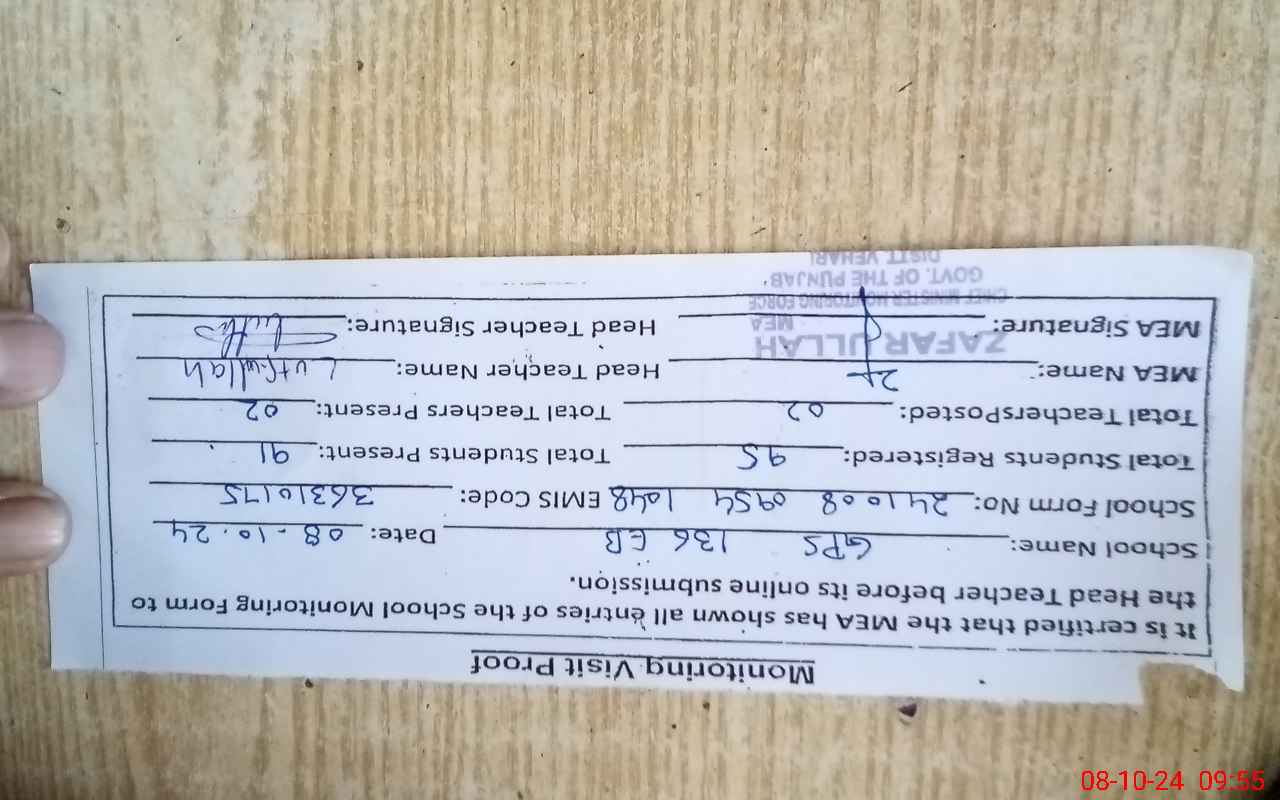 Monitoring Visit Proof
It is certified that the MEA has shown all entries of the School Monitoring Form to
the Head Teacher before its online submission.
School Name: GPS 136 EB Date: 08-10.24
School Form No: 241008 0954 1048 EMIS Code: 36310175
Total Students Registered: 95 Total Students Present: 91
Total TeachersPosted: 02 Total Teachers Present: 02
MEA Name: Head Teacher Name: Lutfullah
MEA Signature: Head Teacher Signature:
ZAFAR ULLAH
MEA
CHIEF MINISTER MONITORING FORCE
GOVT. OF THE PUNJAB
DISTT VEHARI
08-10-24 09:55